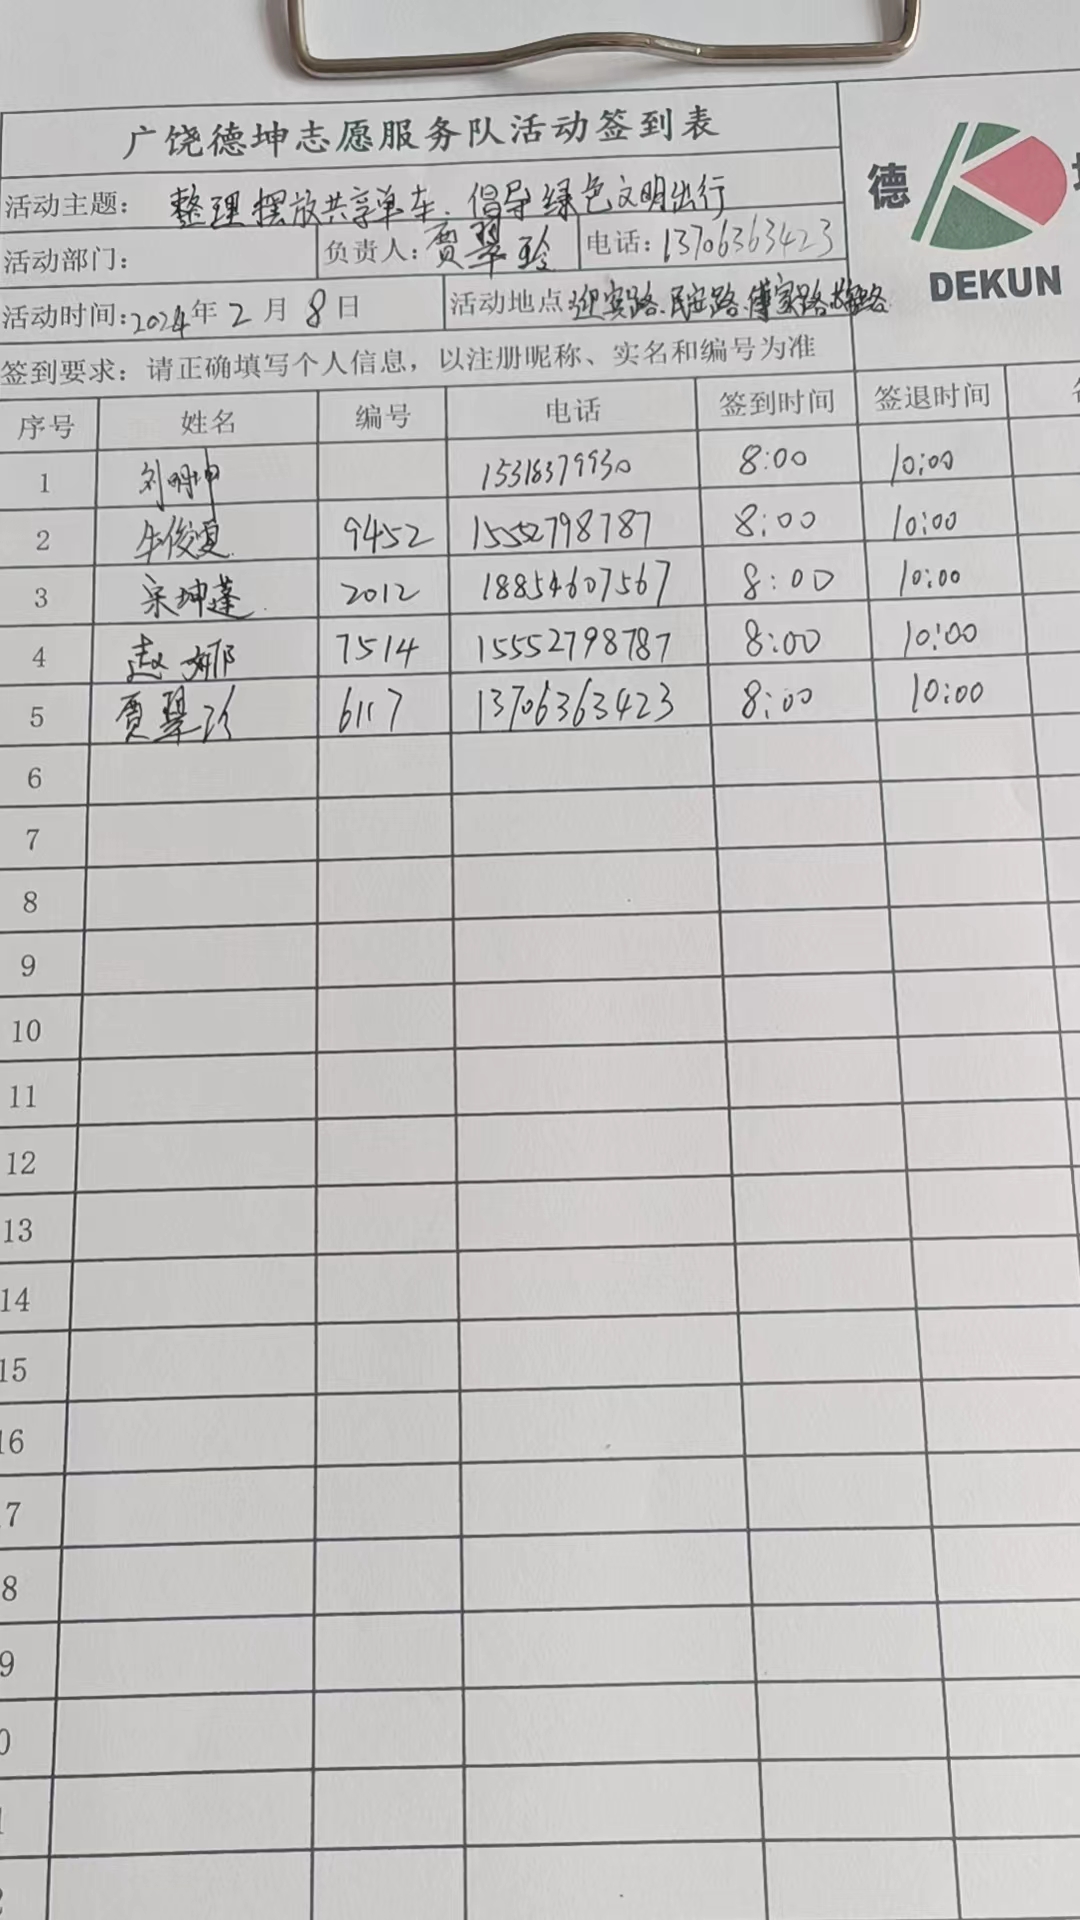 广饶德坤志愿服务队活动签到表
德
DEKUN
活动主题: 整理摆放共享单车、倡导绿色文明出行
活动部门: 负责人: 贾翠玲 电话: 13706363423
活动时间: 2024年2月8日 活动地点 迎宾路、民安路、傅家路
签到要求: 请正确填写个人信息, 以注册昵称、实名和编号为准
序号 姓名 编号 电话 签到时间 签退时间
1 刘明坤 15318379930 8:00 10:00
2 牛俊夏 9452 15552798787 8:00 10:00
3 宋坤蓬 2012 18854607567 8:00 10:00
4 赵娜 7514 15552798787 8:00 10:00
5 贾翠玲 6117 13706363423 8:00 10:00
6
7
8
9
10
11
12
13
14
15
16
7
8
9
0
1
2